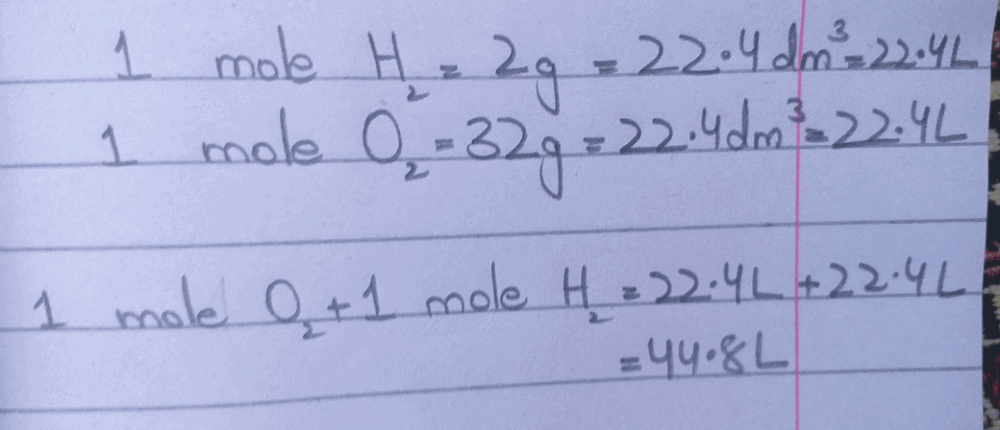 1 mole H₂ = 2g = 22.4 dm³ = 22.4L
1 mole O₂ = 32g = 22.4dm³ = 22.4L
1 mole O₂ + 1 mole H₂ = 22.4L + 22.4L
= 44.8L